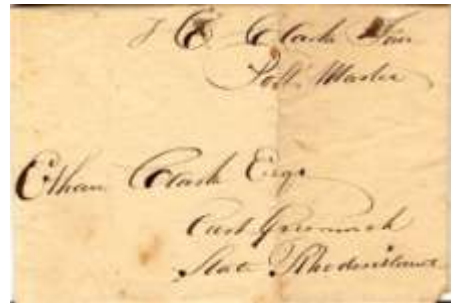 E Clark Jun
Post Master
Ethan Clark Esqr
East Greenwich
State Rhodeisland